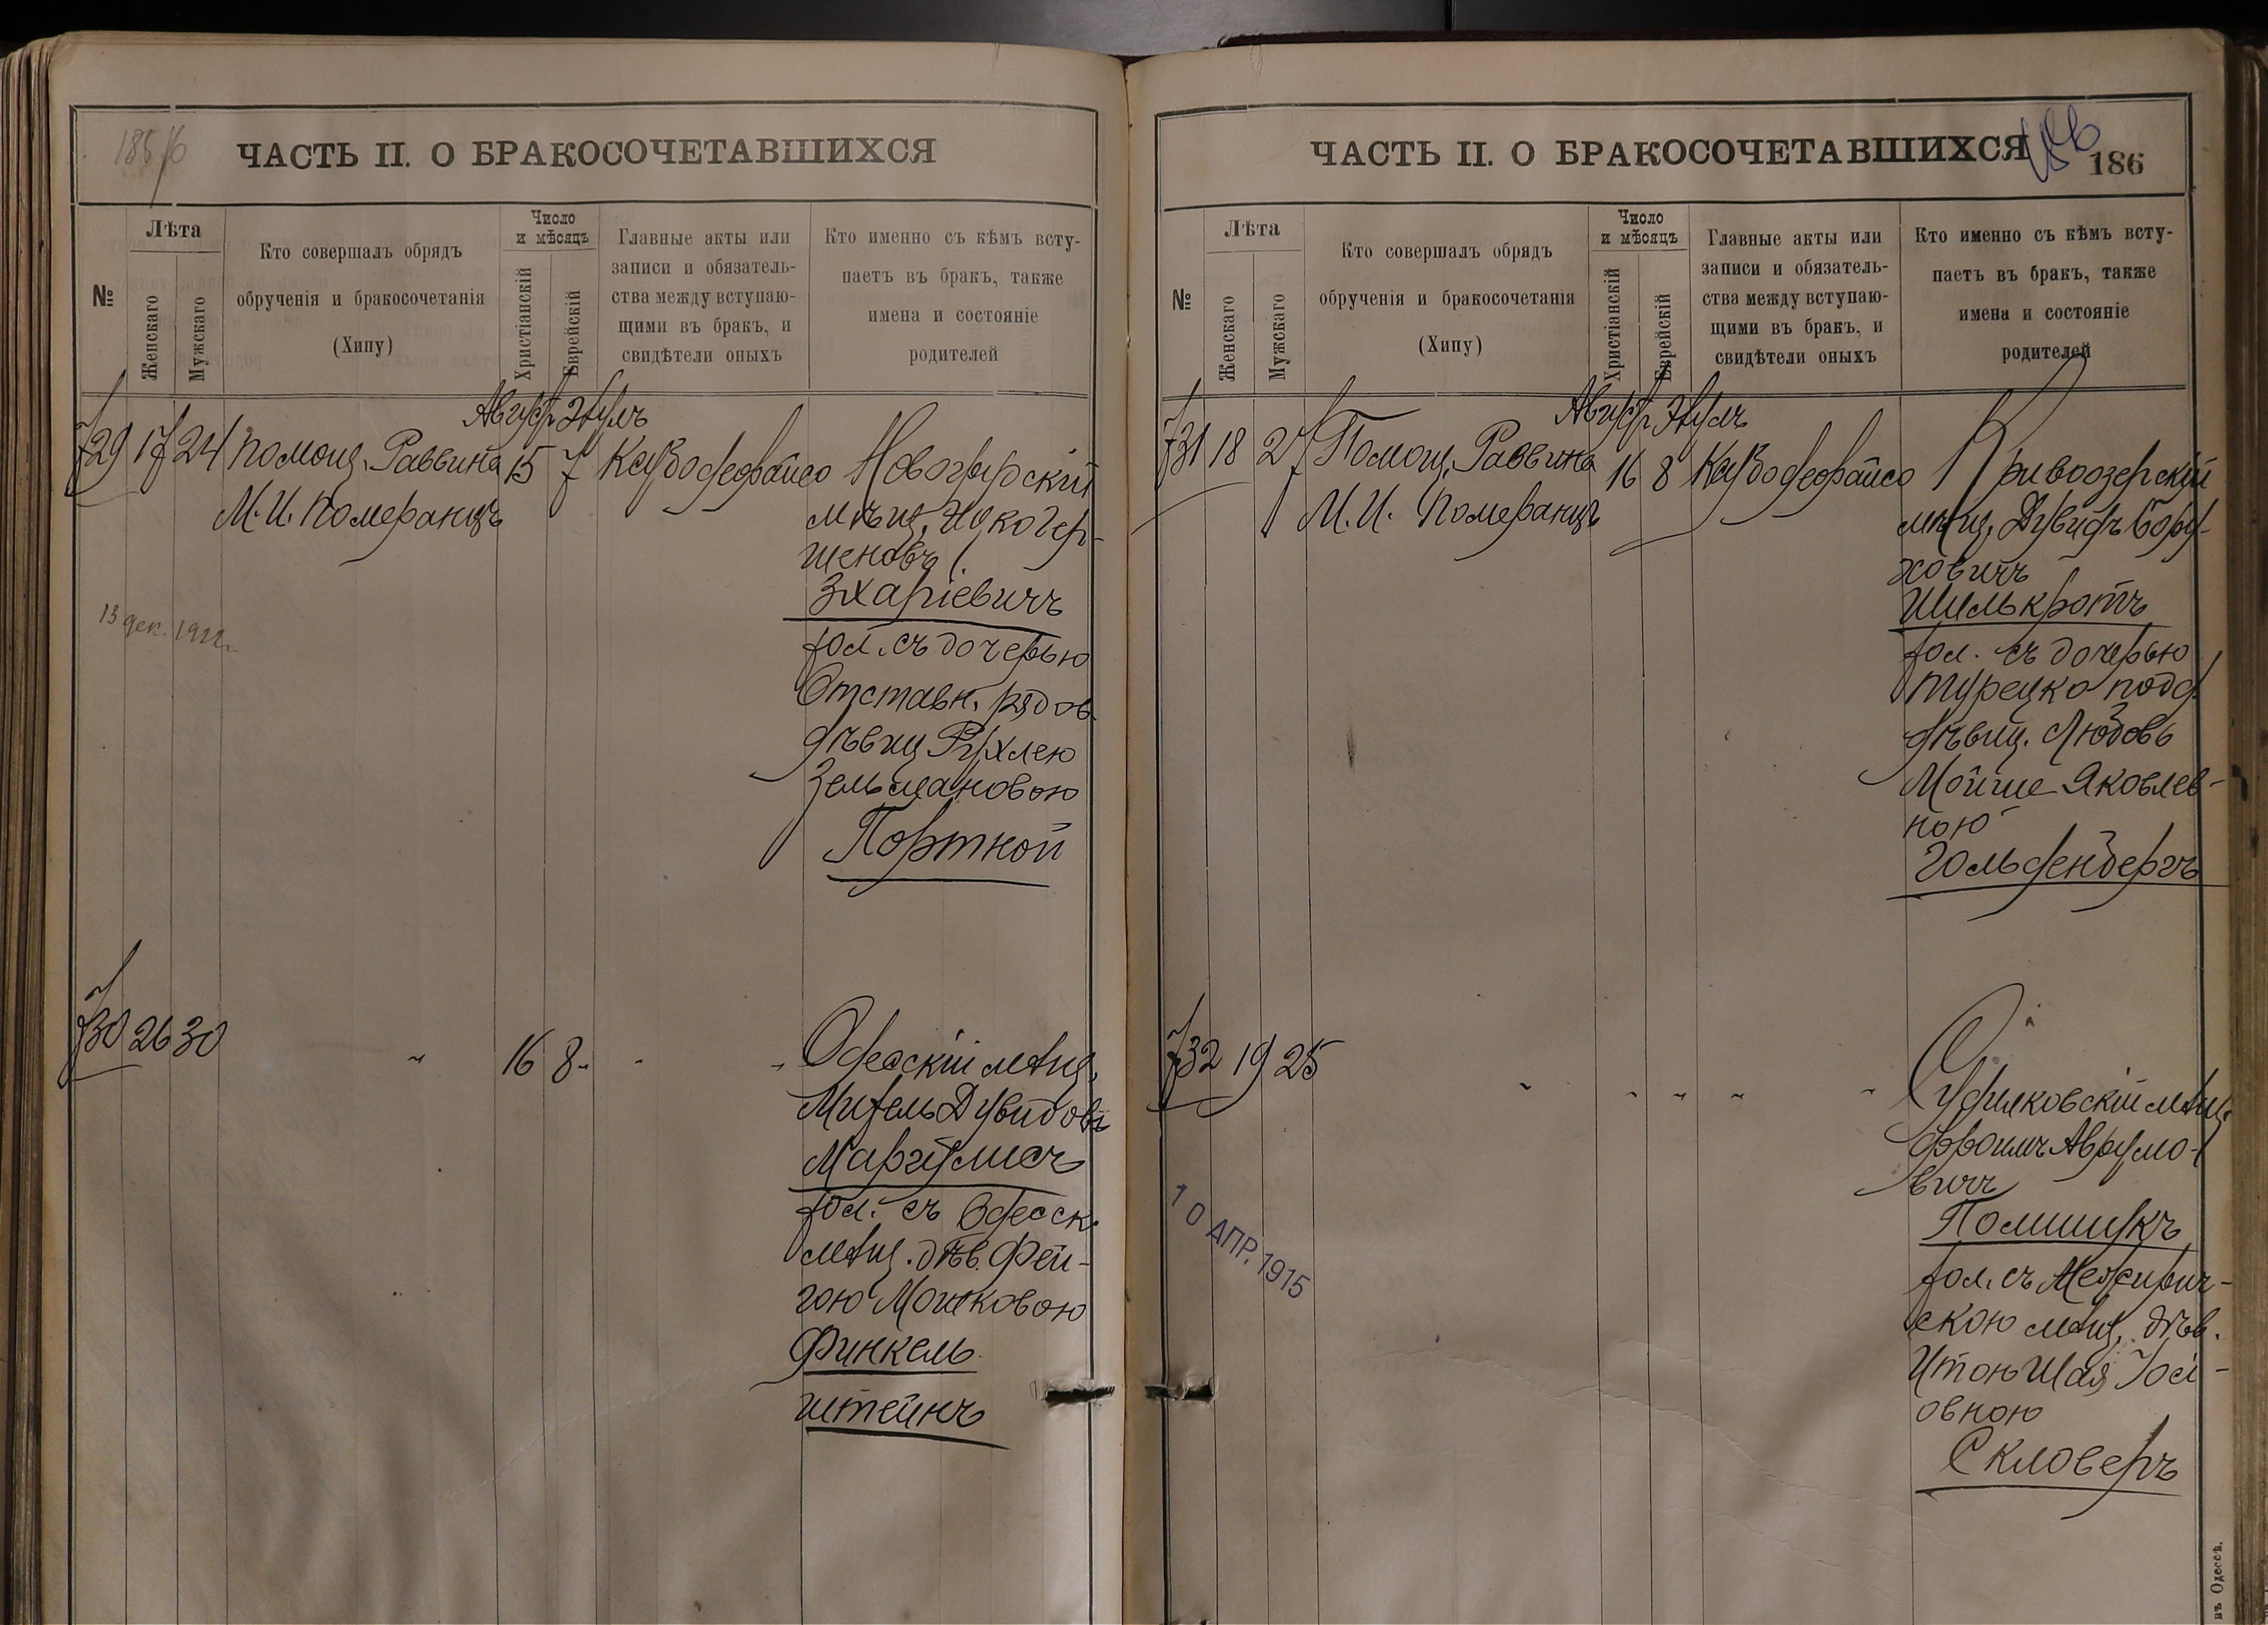 185/6
ЧАСТЬ II. О БРАКОСОЧЕТАВШИХСЯ
№
Лѣта
Женскаго
Мужскаго
Кто совершалъ обрядъ
обрученія и бракосочетанія
(Хипу)
Число
и мѣсяцъ
Христіанскій
Еврейскій
Главные акты или
записи и обязатель-
ства между вступаю-
щими въ бракъ, и
свидѣтели оныхъ
Кто именно съ кѣмъ всту-
паетъ въ бракъ, также
имена и состояніе
родителей
Август Элулъ
729 17 24 Помощ. Раввина 15 7
М. И. Померанцъ
мѣщ. Гер-
шеновъ
Зхаріевичъ
хол. съ дочерью
Отставн. рядов.
дѣвиц Рухлею
Зельмановою
Порткой
13 дек. 1922 г.
730 26 30 " 16 8 " "
Одесскій мѣщ.
Дувидовъ
Маргулисъ
хол. съ Одесск.
мѣщ. дѣв. Фей-
гою Мошковою
Финкель
штейнъ
ЧАСТЬ II. О БРАКОСОЧЕТАВШИХСЯ
186
186
№
Лѣта
Женскаго
Мужскаго
Кто совершалъ обрядъ
обрученія и бракосочетанія
(Хипу)
Число
и мѣсяцъ
Христіанскій
Еврейскій
Главные акты или
записи и обязатель-
ства между вступаю-
щими въ бракъ, и
свидѣтели оныхъ
Кто именно съ кѣмъ всту-
паетъ въ бракъ, также
имена и состояніе
родителей
Август Элулъ
731 18 27 Помощ. Раввина 16 8
М. И. Померанцъ
Кривоозерскій
мѣщ. Дувидъ Бору-
ховичъ
Шилькротъ
хол. съ дочерью
Турецко подд.
дѣвиц. Любовь
Мойше Яковлев-
ною
Гольденбергъ
732 19 25 " " " " "
Судилковскій мѣщ.
Фроимъ Аврумо-
вичъ
Полищукъ
хол. съ Межирич-
скою мѣщ. дѣв.
Итою Шая Іосі-
овною
Скловеръ
10 АПР. 1915
въ Одессѣ.